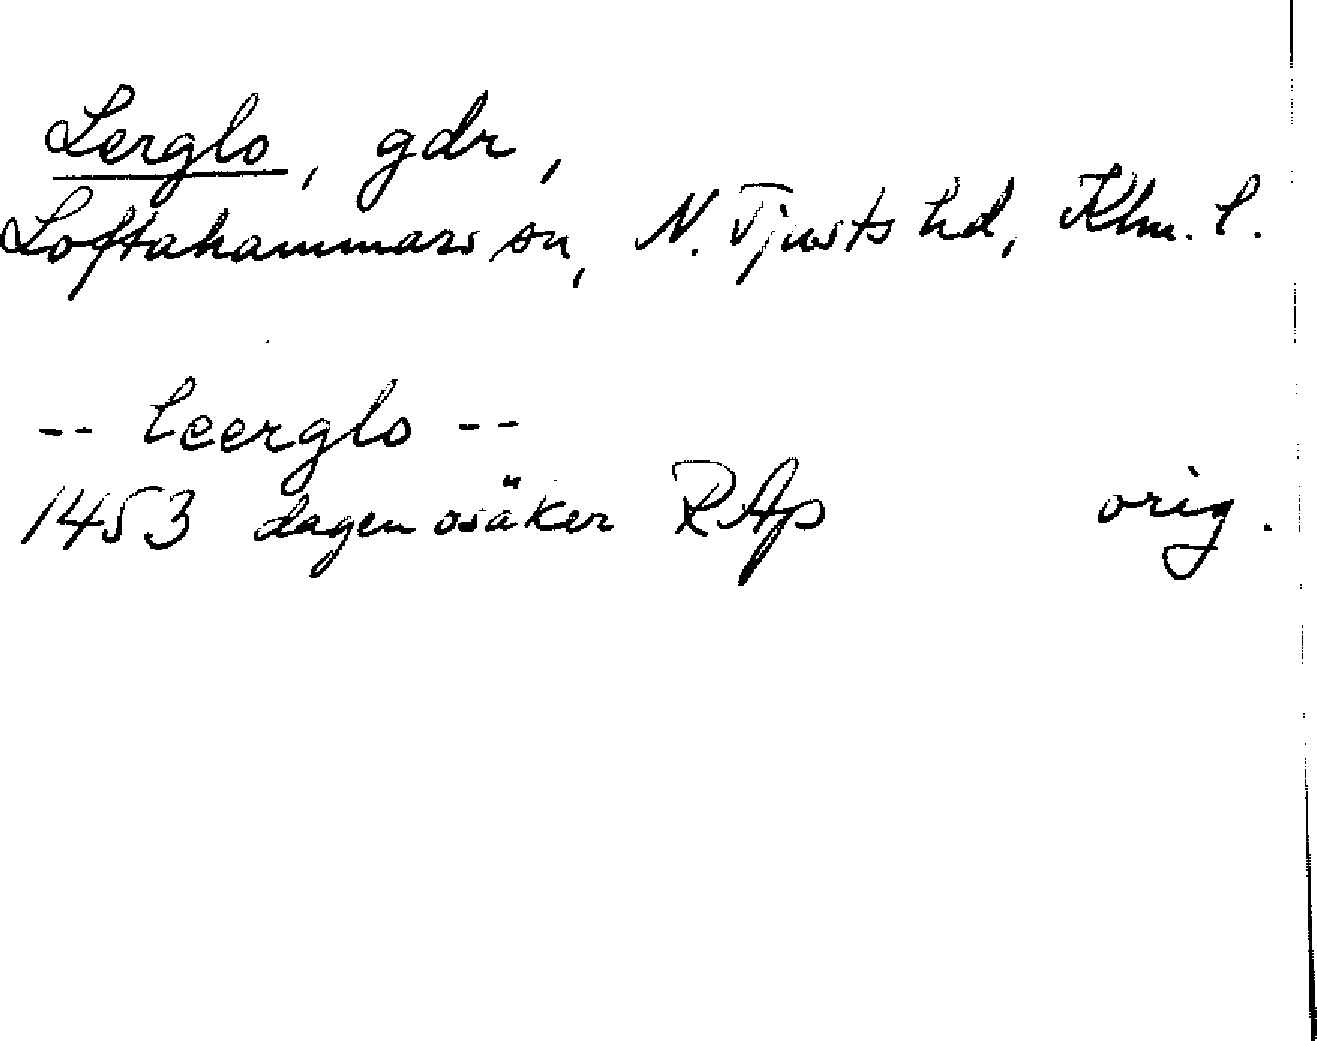 Lerglo, gdr,
Loftahammars sn, N. Tjusts hd, Klm. l.
-- leerglo --
1453 dagen osäker RAp orig.